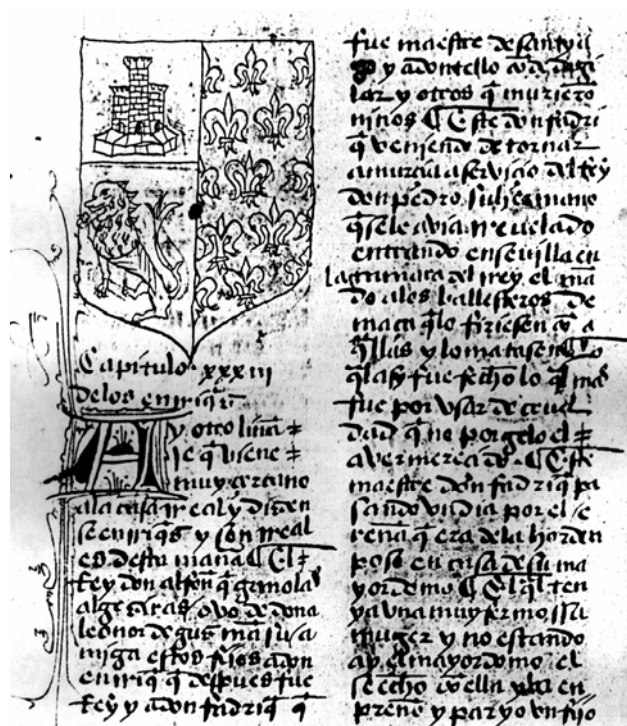 Capitulo xxxiii
delos enriq̃z
Ay otro lina=
je q̃ viene=
muy cercano
ala casa rreal y dizen
se enrriq̃s y son rreal
es desta manã El=
Rey don alfon q̃ gano las
algeziras ovo de dona
leonor de guzmã su a
miga estos fijos a don
enrriq̃ q̃ despues fue
Rey y a don fadriq̃ q̃
fue maestre de santya
go y a don tello cõde dagi
lar y otros q̃ muriero
ninos Este don fadri
q̃ veniendo de tornar
a murcia a servicio del rey
don pedro su hermano
q̃ se le avia rrevelado
entrando en sevilla en
la camara del rrey el mã
do a los ballesteros de
maça q̃ lo firiesen cõ a
q̃llas y lo matasen
q̃ asy fue fecho lo q̃l mas
fue por vsar de cruel
dad q̃ no por gelo el=
aver merecido Este
maestre don fadriq̃ pa
sando vn dia por el
rena q̃ era de la horden
poso en casa de su ma
yordomo El q̃l ten
ya vna muy fermosa
muger y no estando
ay el mayordomo el
se echo cõ ella y la en
preño y paryo vn fijo